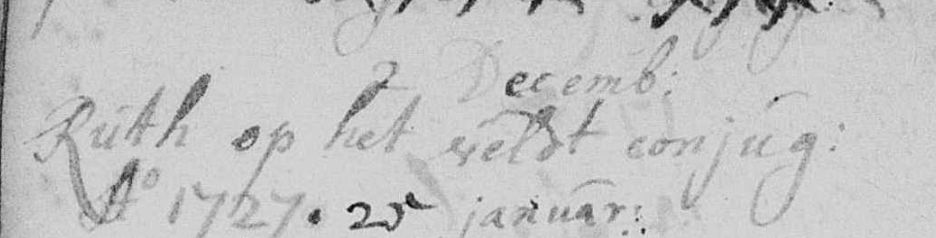 2 Decemb:
Ruth op het veldt conjug:
Aº 1727. 25 januar: